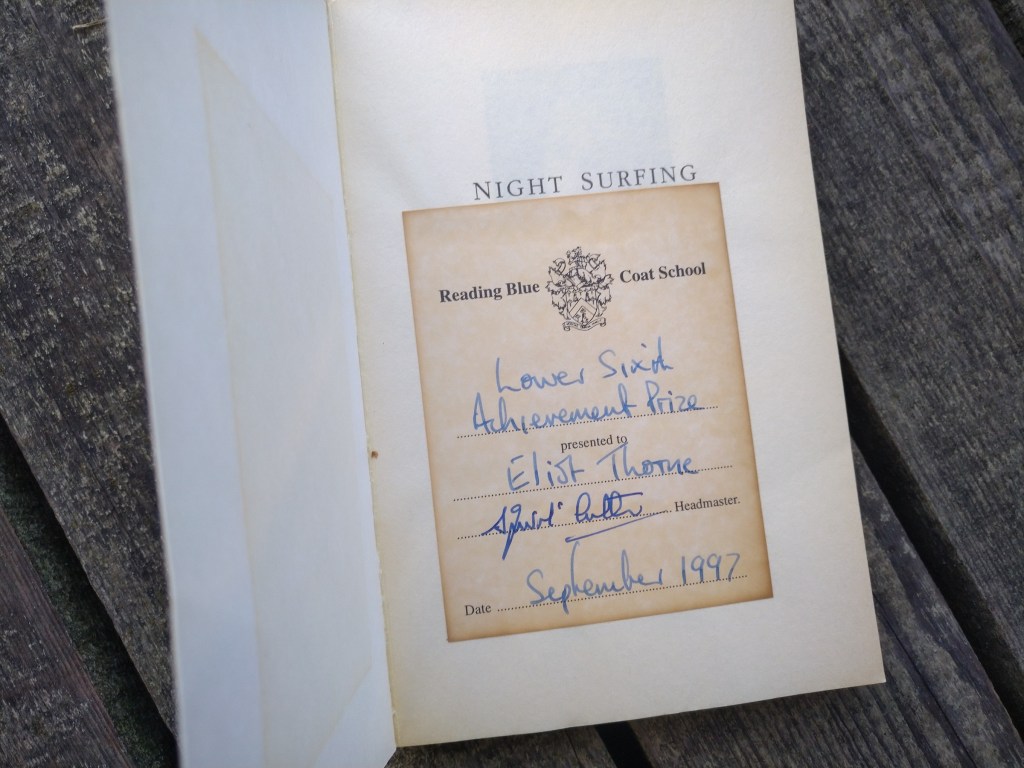 NIGHT SURFING
Reading Blue Coat School
Lower Sixth
Achievement Prize
presented to
Eliot Thorne
Headmaster.
Date September 1997